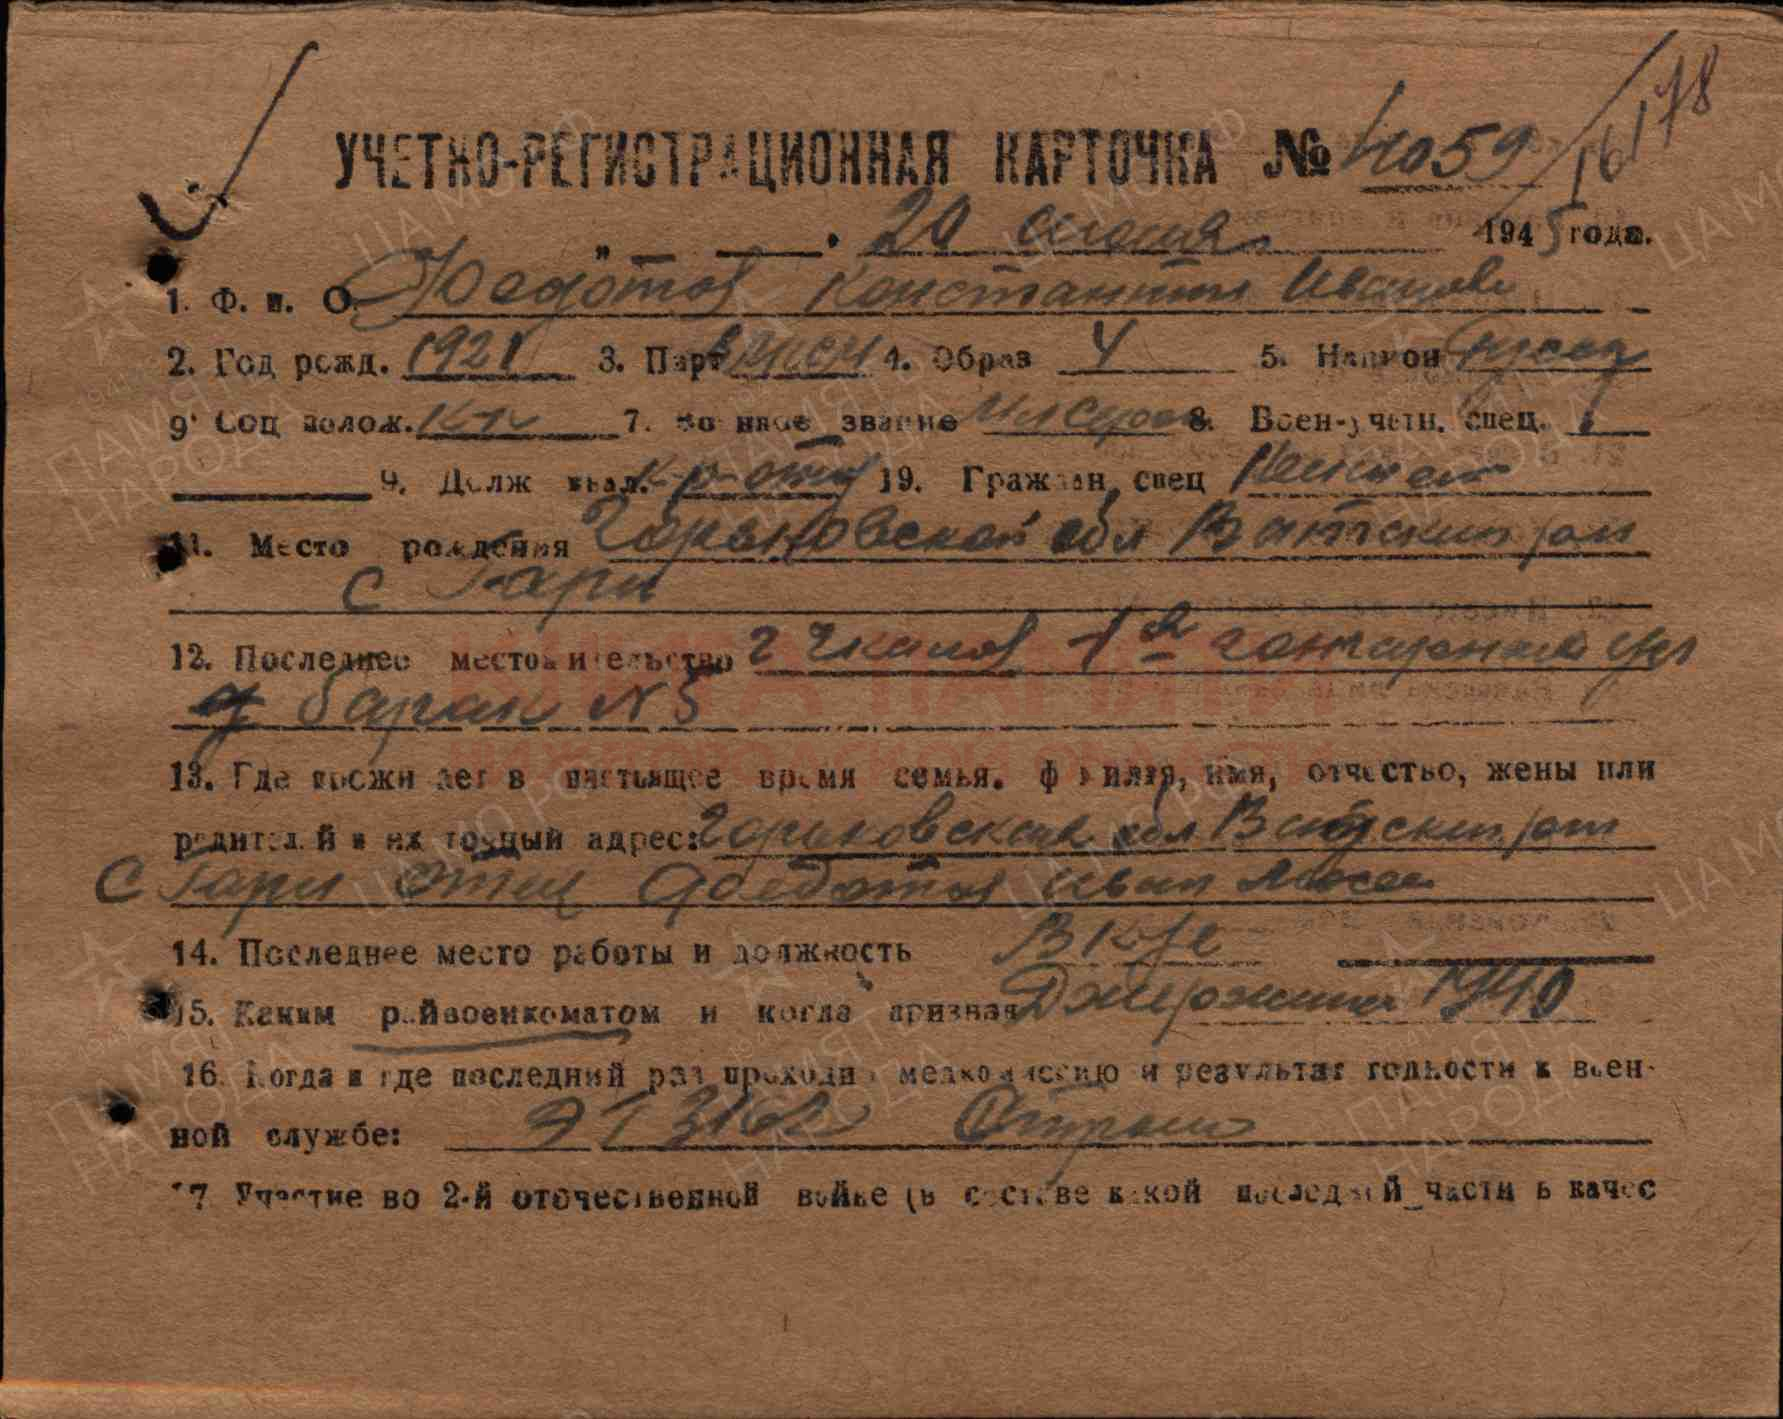 УЧЕТНО-РЕГИСТРАЦИОННАЯ КАРТОЧКА № 4059/16178
" — . 20 июня 1945 года.
1. Ф. и. О. Федотов Константин Иванов
2. Год рожд. 1921 3. Парт ВЛКСМ 4. Образ 4 5. Национ русск
9. Соц полож. кр 7. Военное звание Мл серж 8. Воен-учетн. спец. 1
9. Долж квал. к-р отд 19. Граждан, спец
11. Место рождения Горьковской обл Ватский рай
с Гари
12. Последнее местожительство г Чкалов 1я ул
барак N 5
13. Где проживает в настоящее время семья. фамилия, имя, отчество, жены или
родителей и их точный адрес: Горьковская обл. Ватский рай
с Гари отец Федотов Иван
14. Последнее место работы и должность В кр
15. Каким райвоенкоматом и когда призван Дзержинск 1940
16. Когда и где последний раз проходил медкомиссию и результат годности к воен-
ной службе: ЭГ 3162
17 Участие во 2-й отечественной войне (в составе какой последней части в качес